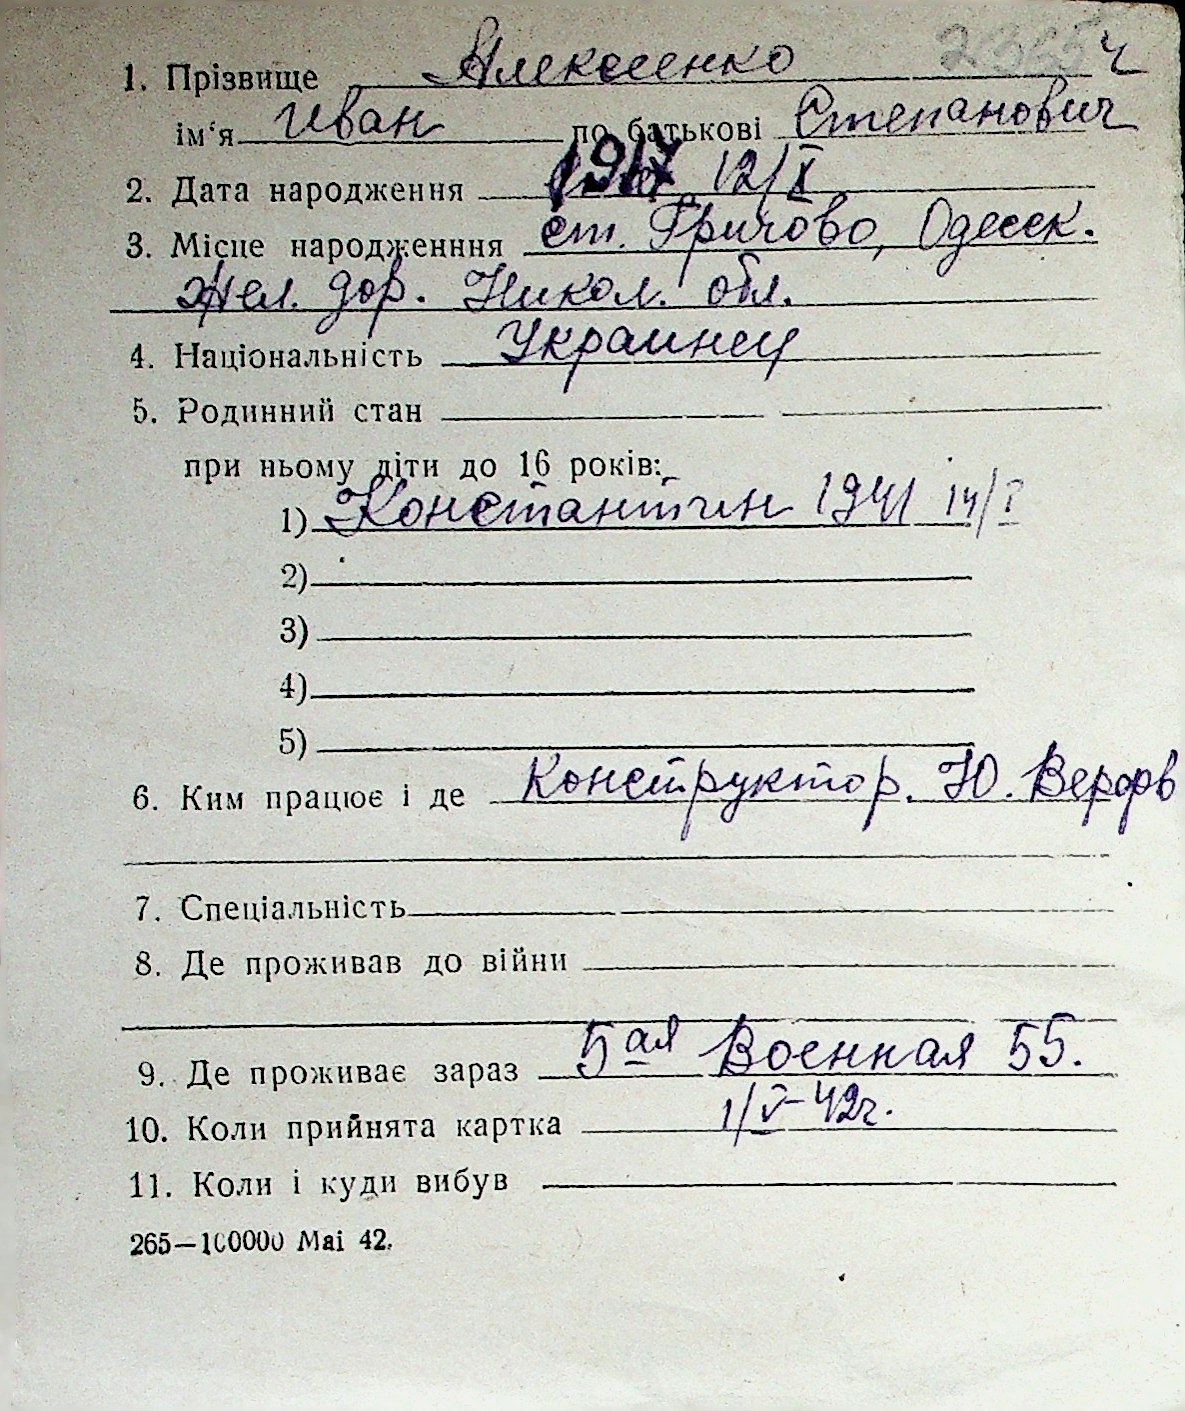 2365 ч
1. Прізвище Алексеенко
ім'я Иван по батькові Степанович
2. Дата народження 1917 12/X
3. Місце народженння ст. Гричово, Одесск.
Жел. дор. Никол. обл.
4. Національність Украинец
5. Родинний стан
при ньому діти до 16 років:
1) Константин 1941 14/I
2)
3)
4)
5)
6. Ким працює і де Конструктор. Ю. Верфь
7. Спеціальність
8. Де проживав до війни
9. Де проживає зараз 5ая Военная 55.
10. Коли прийнята картка 1/V-42г.
11. Коли і куди вибув
265—100000 Mai 42.